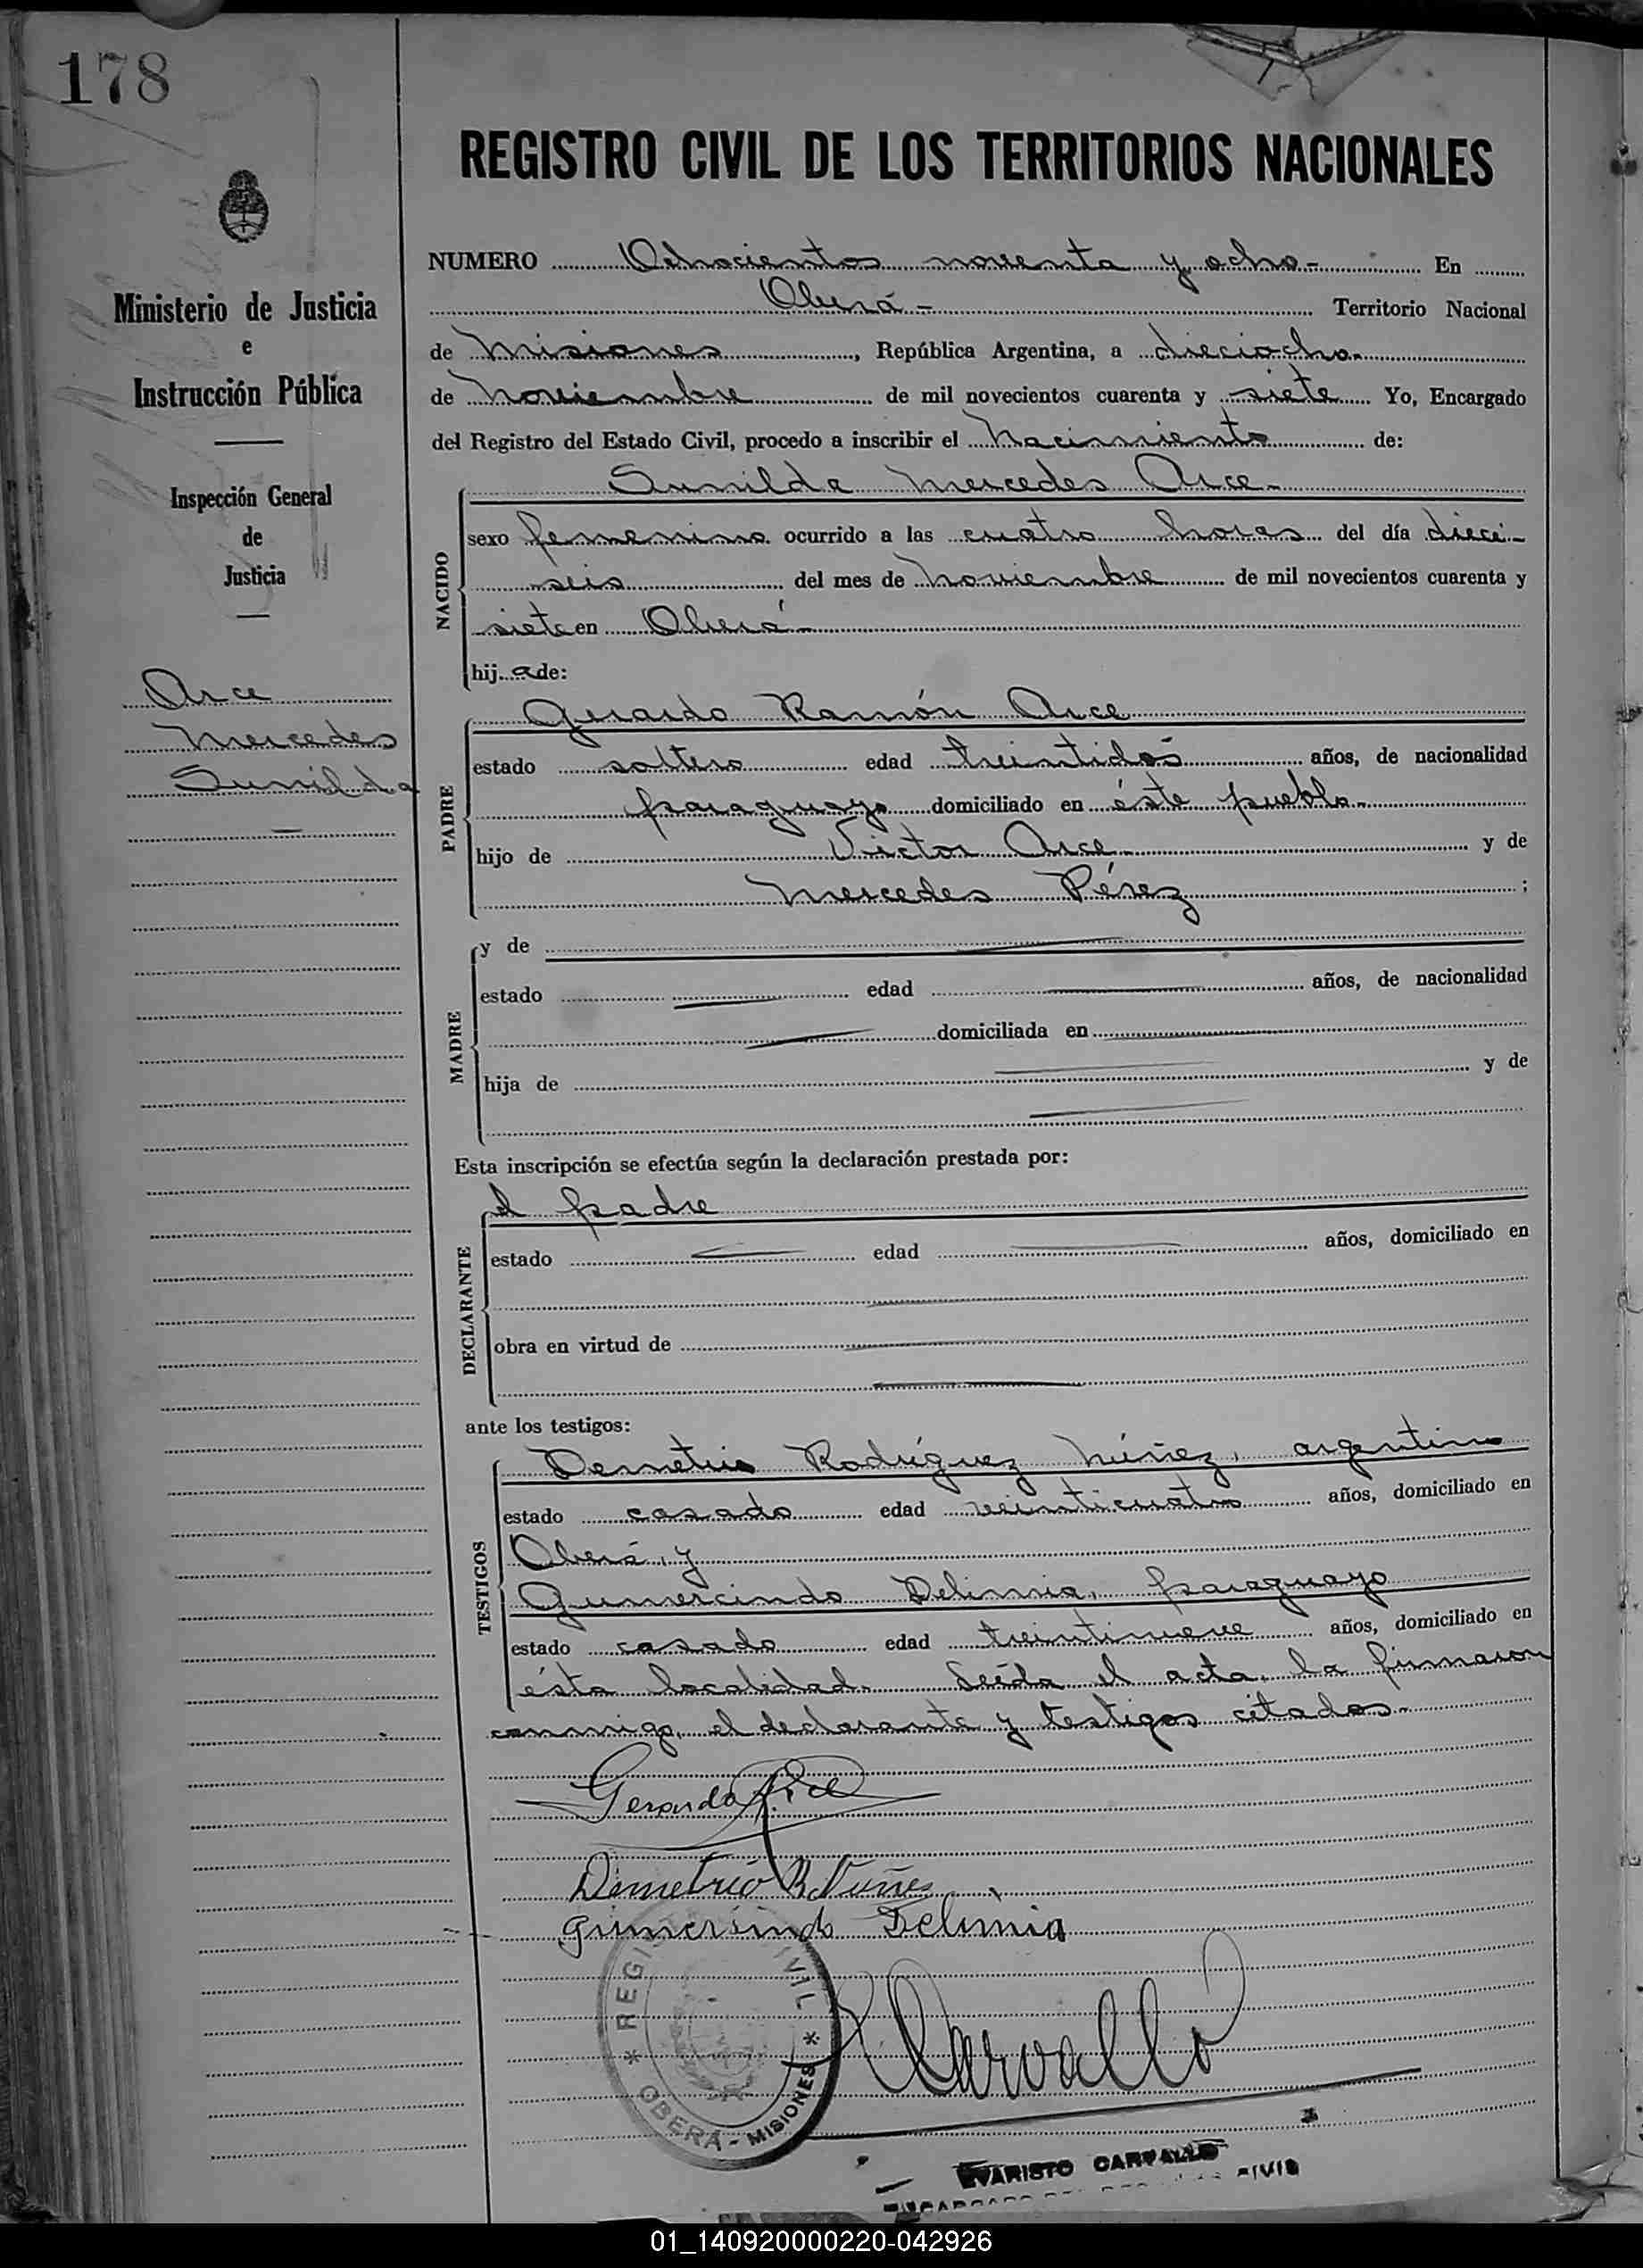 178
REGISTRO CIVIL DE LOS TERRITORIOS NACIONALES
Ministerio de Justicia
e
Instrucción Pública
Inspección General
de
Justicia
Arce
Mercedes
Sunilda
NUMERO Ochocientos noventa y ocho.- En
Oberá.- Territorio Nacional
de Misiones, República Argentina, a dieciocho.
de Noviembre de mil novecientos cuarenta y siete Yo, Encargado
del Registro del Estado Civil, procedo a inscribir el Nacimiento de:
NACIDO
Sunilda Mercedes Arce.-
sexo femenino ocurrido a las cuatro horas del día dieci-
seis del mes de Noviembre de mil novecientos cuarenta y
siete en Oberá.-
hija de:
PADRE
Gerardo Ramón Arce
estado soltero edad treintidós años, de nacionalidad
paraguayo domiciliado en éste pueblo.-
hijo de Victor Arce y de
Mercedes Pérez ;
MADRE
y de
estado edad años, de nacionalidad
domiciliada en
hija de y de
Esta inscripción se efectúa según la declaración prestada por:
DECLARANTE
el padre
estado edad años, domiciliado en
obra en virtud de
ante los testigos:
TESTIGOS
Demetrio Rodríguez Núñez, argentino
estado casado edad veinticuatro años, domiciliado en
Oberá, y
Gumercindo Delimia, paraguayo
estado casado edad treintinueve años, domiciliado en
ésta localidad. Leída el acta, la firmaron
conmigo, el declarante y testigos citados.-
Gerardo R. Arce
Demetrio R. Nuñes
Gumersindo Delimia
Carvallo
REGISTRO CIVIL
* OBERÁ - MISIONES *
EVARISTO CARVALLO
01_140920000220-042926